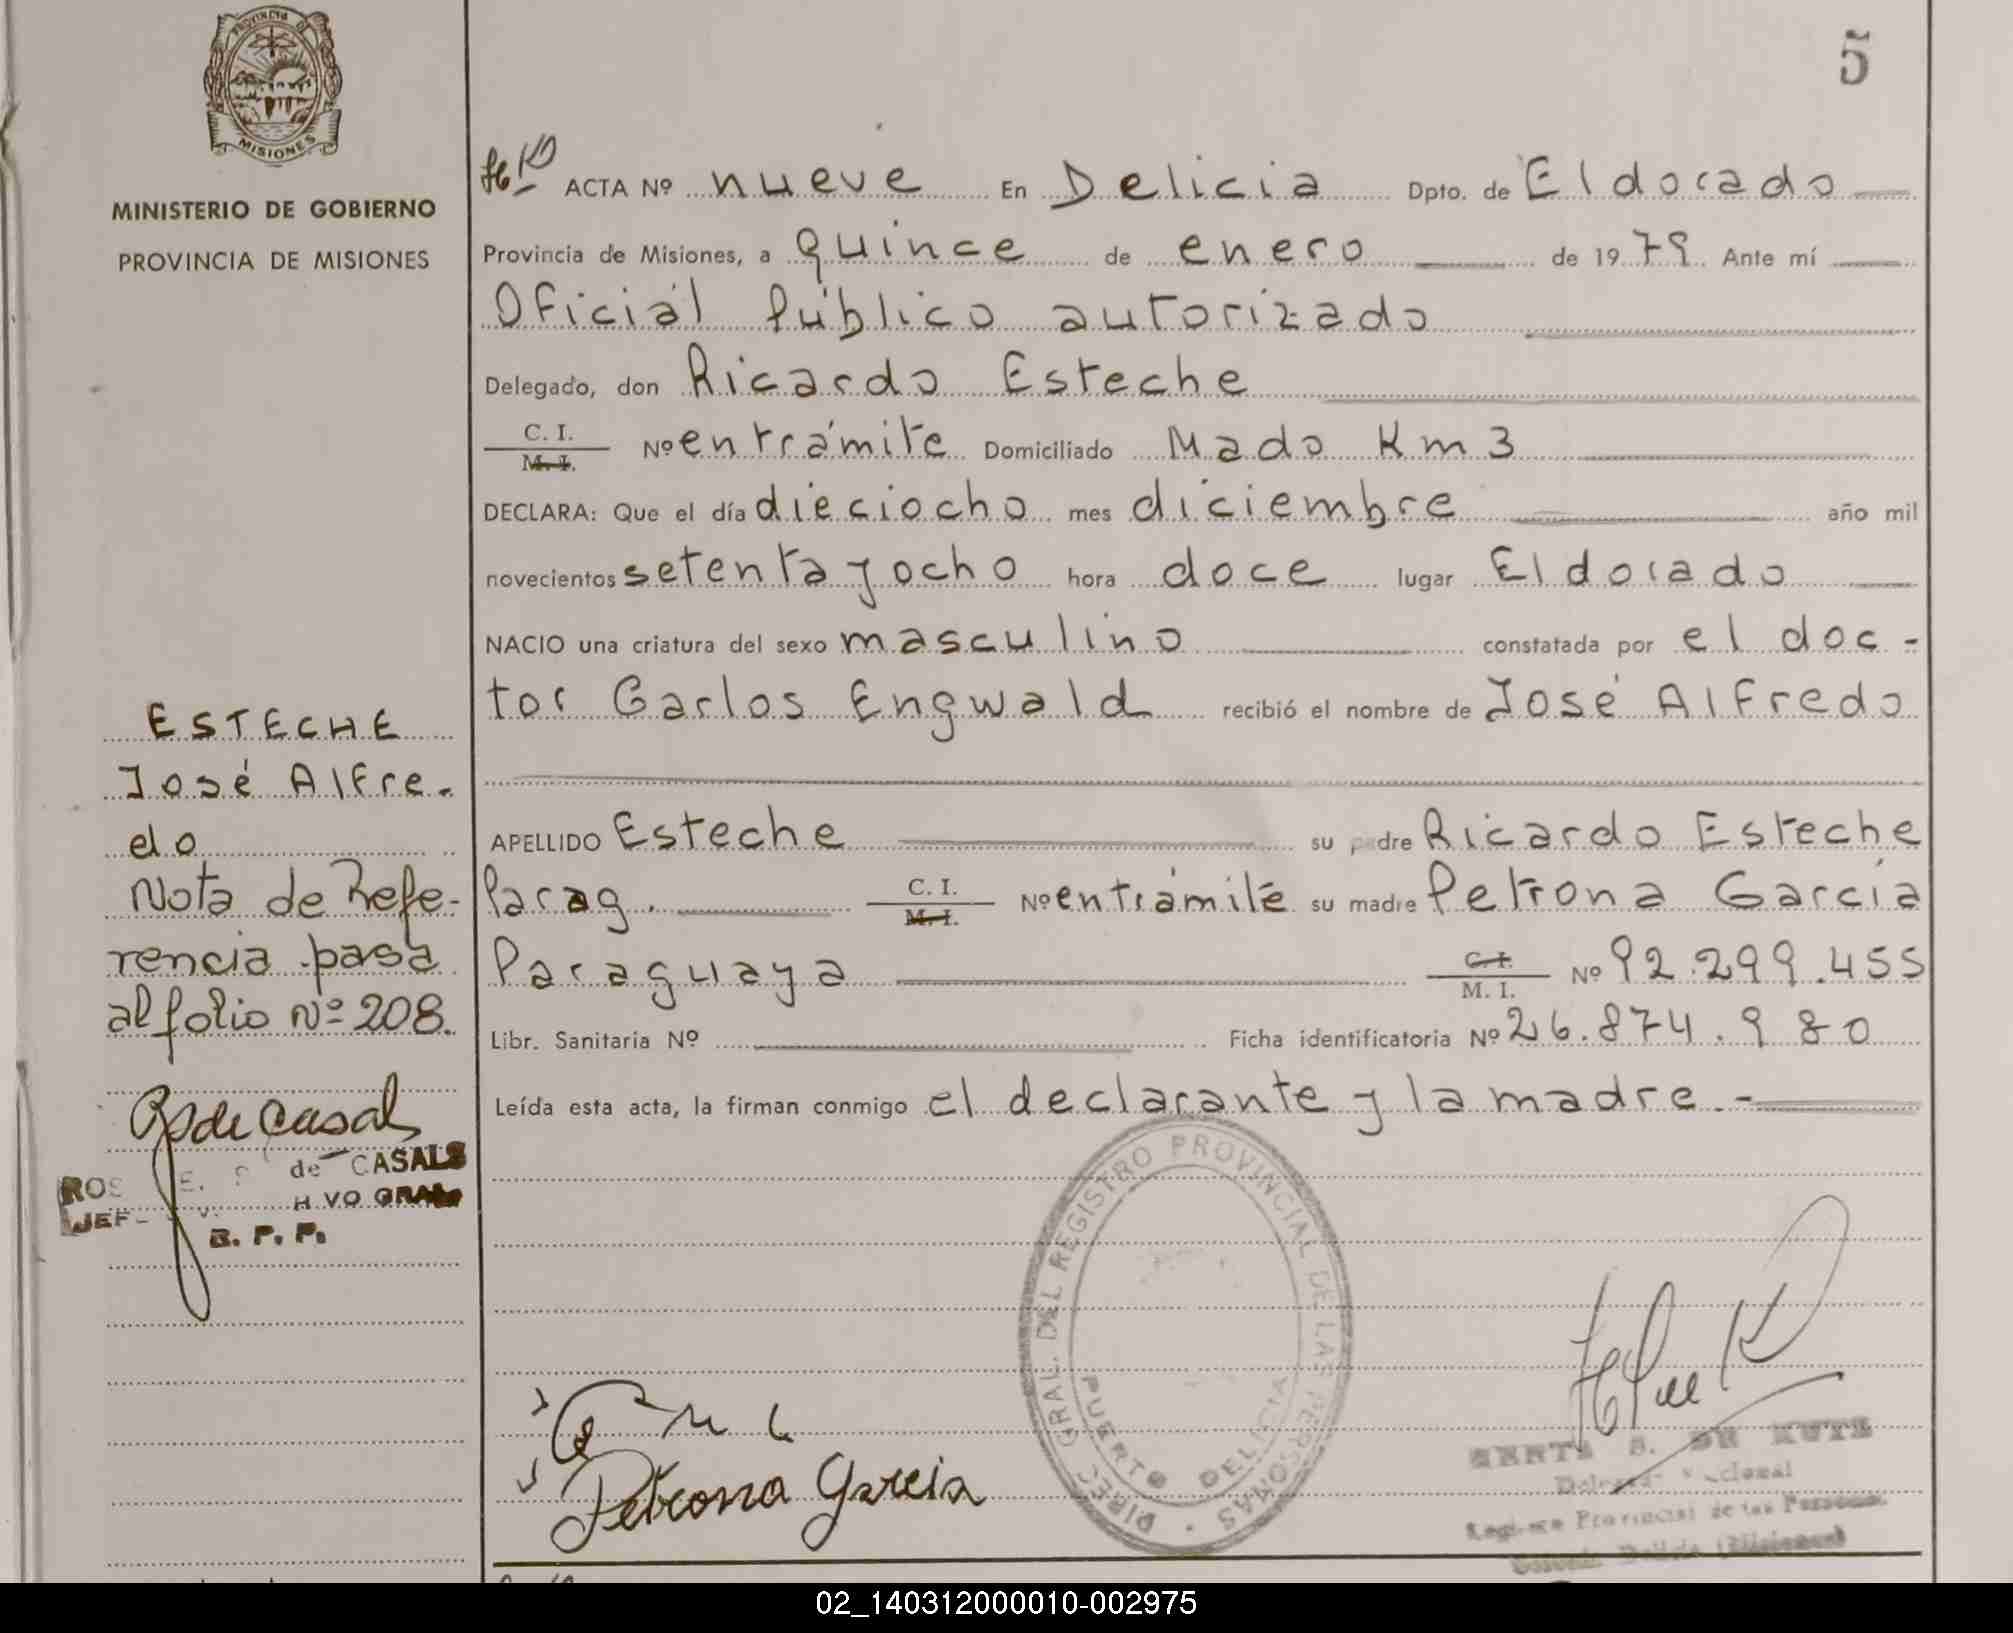 5
PROVINCIA DE
MISIONES
MINISTERIO DE GOBIERNO
PROVINCIA DE MISIONES
ACTA Nº nueve En Delicia Dpto. de Eldorado
Provincia de Misiones, a quince de enero de 1979 Ante mí
Oficial Público autorizado
Delegado, don Ricardo Esteche
C. I.
M. I. Nº entrámite Domiciliado Mado Km 3
DECLARA: Que el día dieciocho mes diciembre año mil
novecientos setenta y ocho hora doce lugar Eldorado
NACIO una criatura del sexo masculino constatada por el doc-
tor Carlos Engwald recibió el nombre de José Alfredo
APELLIDO Esteche su padre Ricardo Esteche
Parag. C. I.
M. I. Nº entrámite su madre Petrona García
Paraguaya C. I.
M. I. Nº 92.299.455
Libr. Sanitaria Nº Ficha identificatoria Nº 26.874.980
Leída esta acta, la firman conmigo el declarante y la madre.-
ESTECHE
José Alfre-
do
Nota de Refe-
rencia pasa
al folio Nº 208.
de Casals
de CASALS
B. P. P.
DIREC. GRAL. DEL REGISTRO PROVINCIAL DE LAS PERSONAS
PUERTO DELICIA
Petrona Garcia
B. DE KUTZ
Registro Provincial de las Personas
02_140312000010-002975